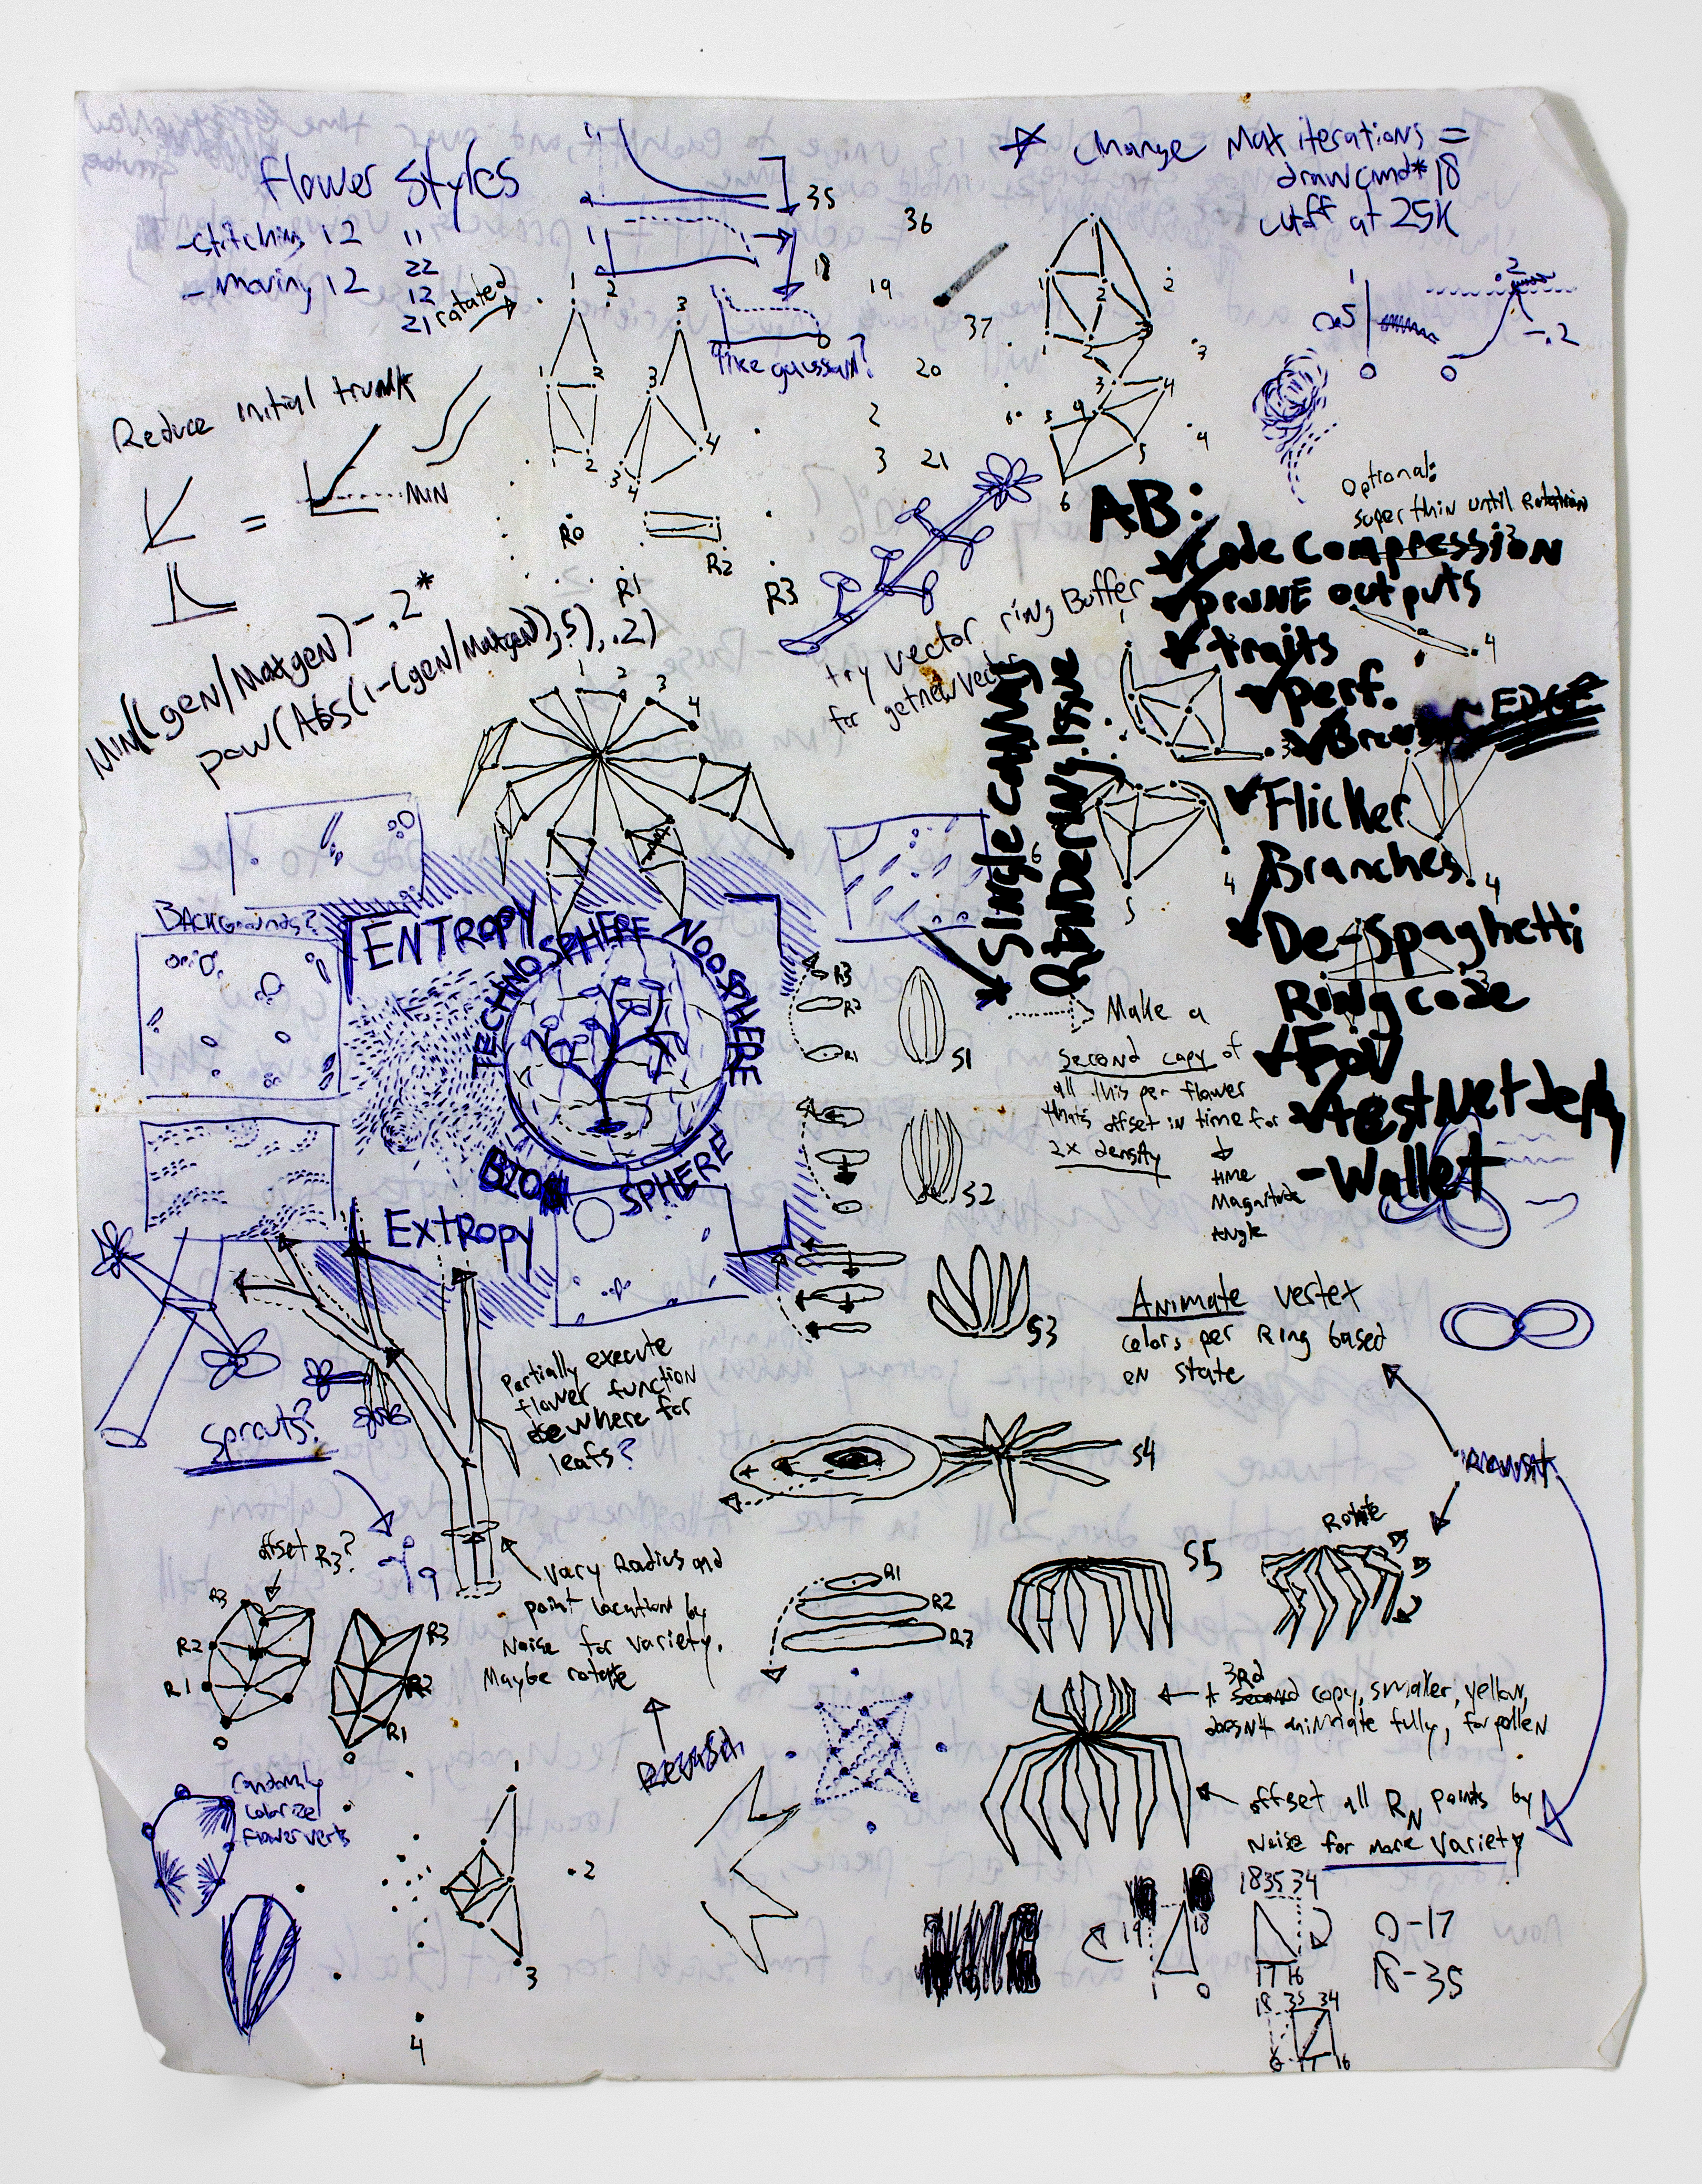 Flower Styles
-stitching 12
- moving 12
11
22
12
21
rotated
35
18
like gaussian?
36
19
37
20
2
3 21
* change Max iterations =
drawcmd*18
cutoff at 25K
1
.2
-.2
0
0
Reduce initial trunk
=
MIN
R0
R1
R2
R3
MIN((gen/Maxgen)-.2*
pow(Abs(1-(gen/Maxgen),5),.2)
try vector ring Buffer
for getnewvector
Optional:
super thin until Rotation
AB:
Code Compression
PRUNE outputs
traits
Perf.
EDGE
Flicker
Branches
De-Spaghetti
Ring code
FOV
testNet deploy
-Wallet
Single canvas
Rendering issue
BACKGrounds?
ENTROPY
TECHNOSPHERE
NOOSPHERE
BIOSPHERE
Extropy
R3
R2
R1
S1
S2
S3
S4
S5
Make a
second copy of
all this per flower
thats offset in time for
2x density
time
Magnitude
Angle
Animate vertex
colors per Ring based
on state
Partially execute
flower function
elsewhere for
leafs?
Sprouts?
offset R3?
R3
R2
R1
0
R3
R2
R1
0
Vary Radius and
point location by
Noise for variety.
Maybe rotate
R1
R2
R3
Rotate
+ 3rd copy, smaller, yellow,
doesn't animate fully, for pollen
offset all RN points by
Noise for more variety
randomly
colorize
flower verts
1
2
3
4
19
18
1
0
18 35 34
17 16
0-17
18-35
18 35 34
0 17 16